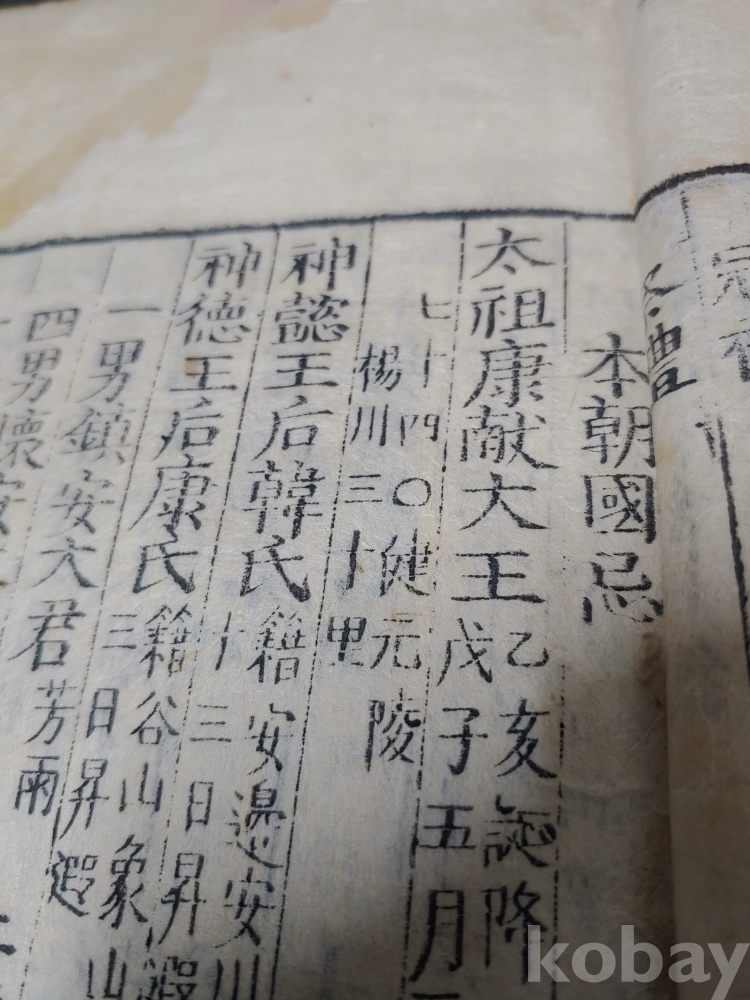 本朝國忌
太祖康献大王乙亥誕降
戊子五月
七十四〇健元陵
楊川三十里
神懿王后韓氏籍安邉安川
十三日昇遐
神徳王后康氏籍谷山象山
三日昇遐
一男鎮安大君芳雨
四男懷安
禮
kobay